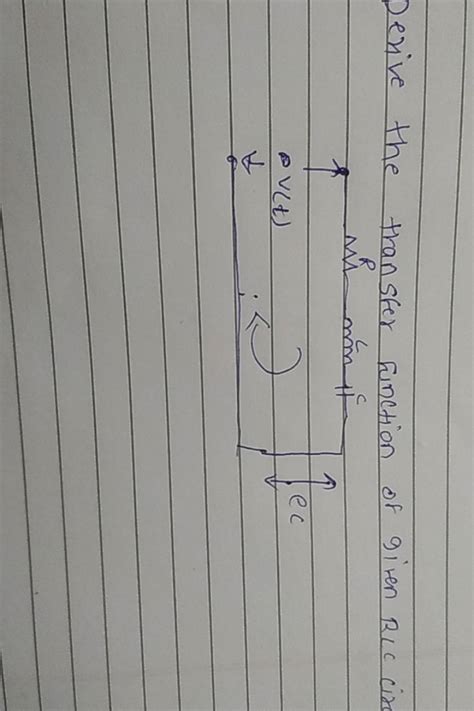 Derive the transfer function of given RLC
R
L
C
v(t)
i
ec